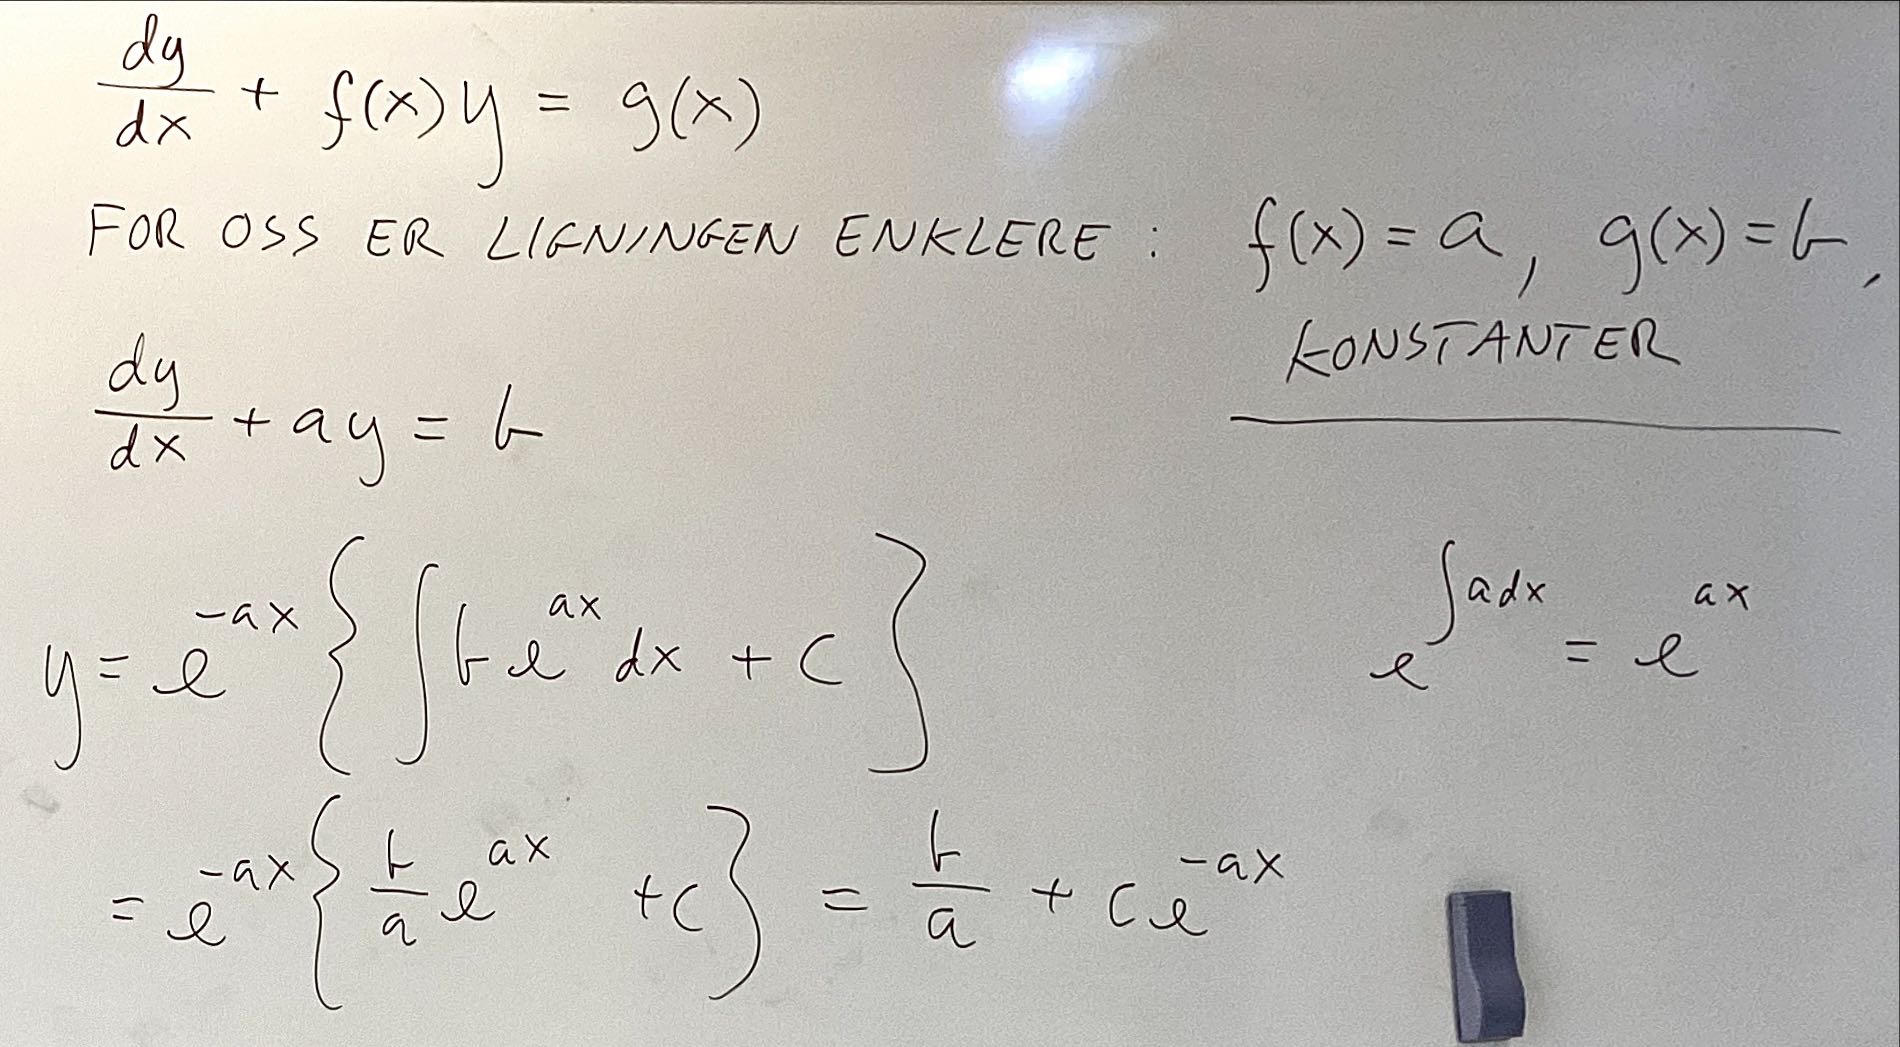 dy/dx + f(x)y = g(x)
FOR OSS ER LIGNINGEN ENKLERE : f(x) = a, g(x) = b,
KONSTANTER
dy/dx + ay = b
y = e^{-ax} { ∫ b e^{ax} dx + c }
e^{∫ a dx} = e^{ax}
= e^{-ax} { b/a e^{ax} + c } = b/a + c e^{-ax}